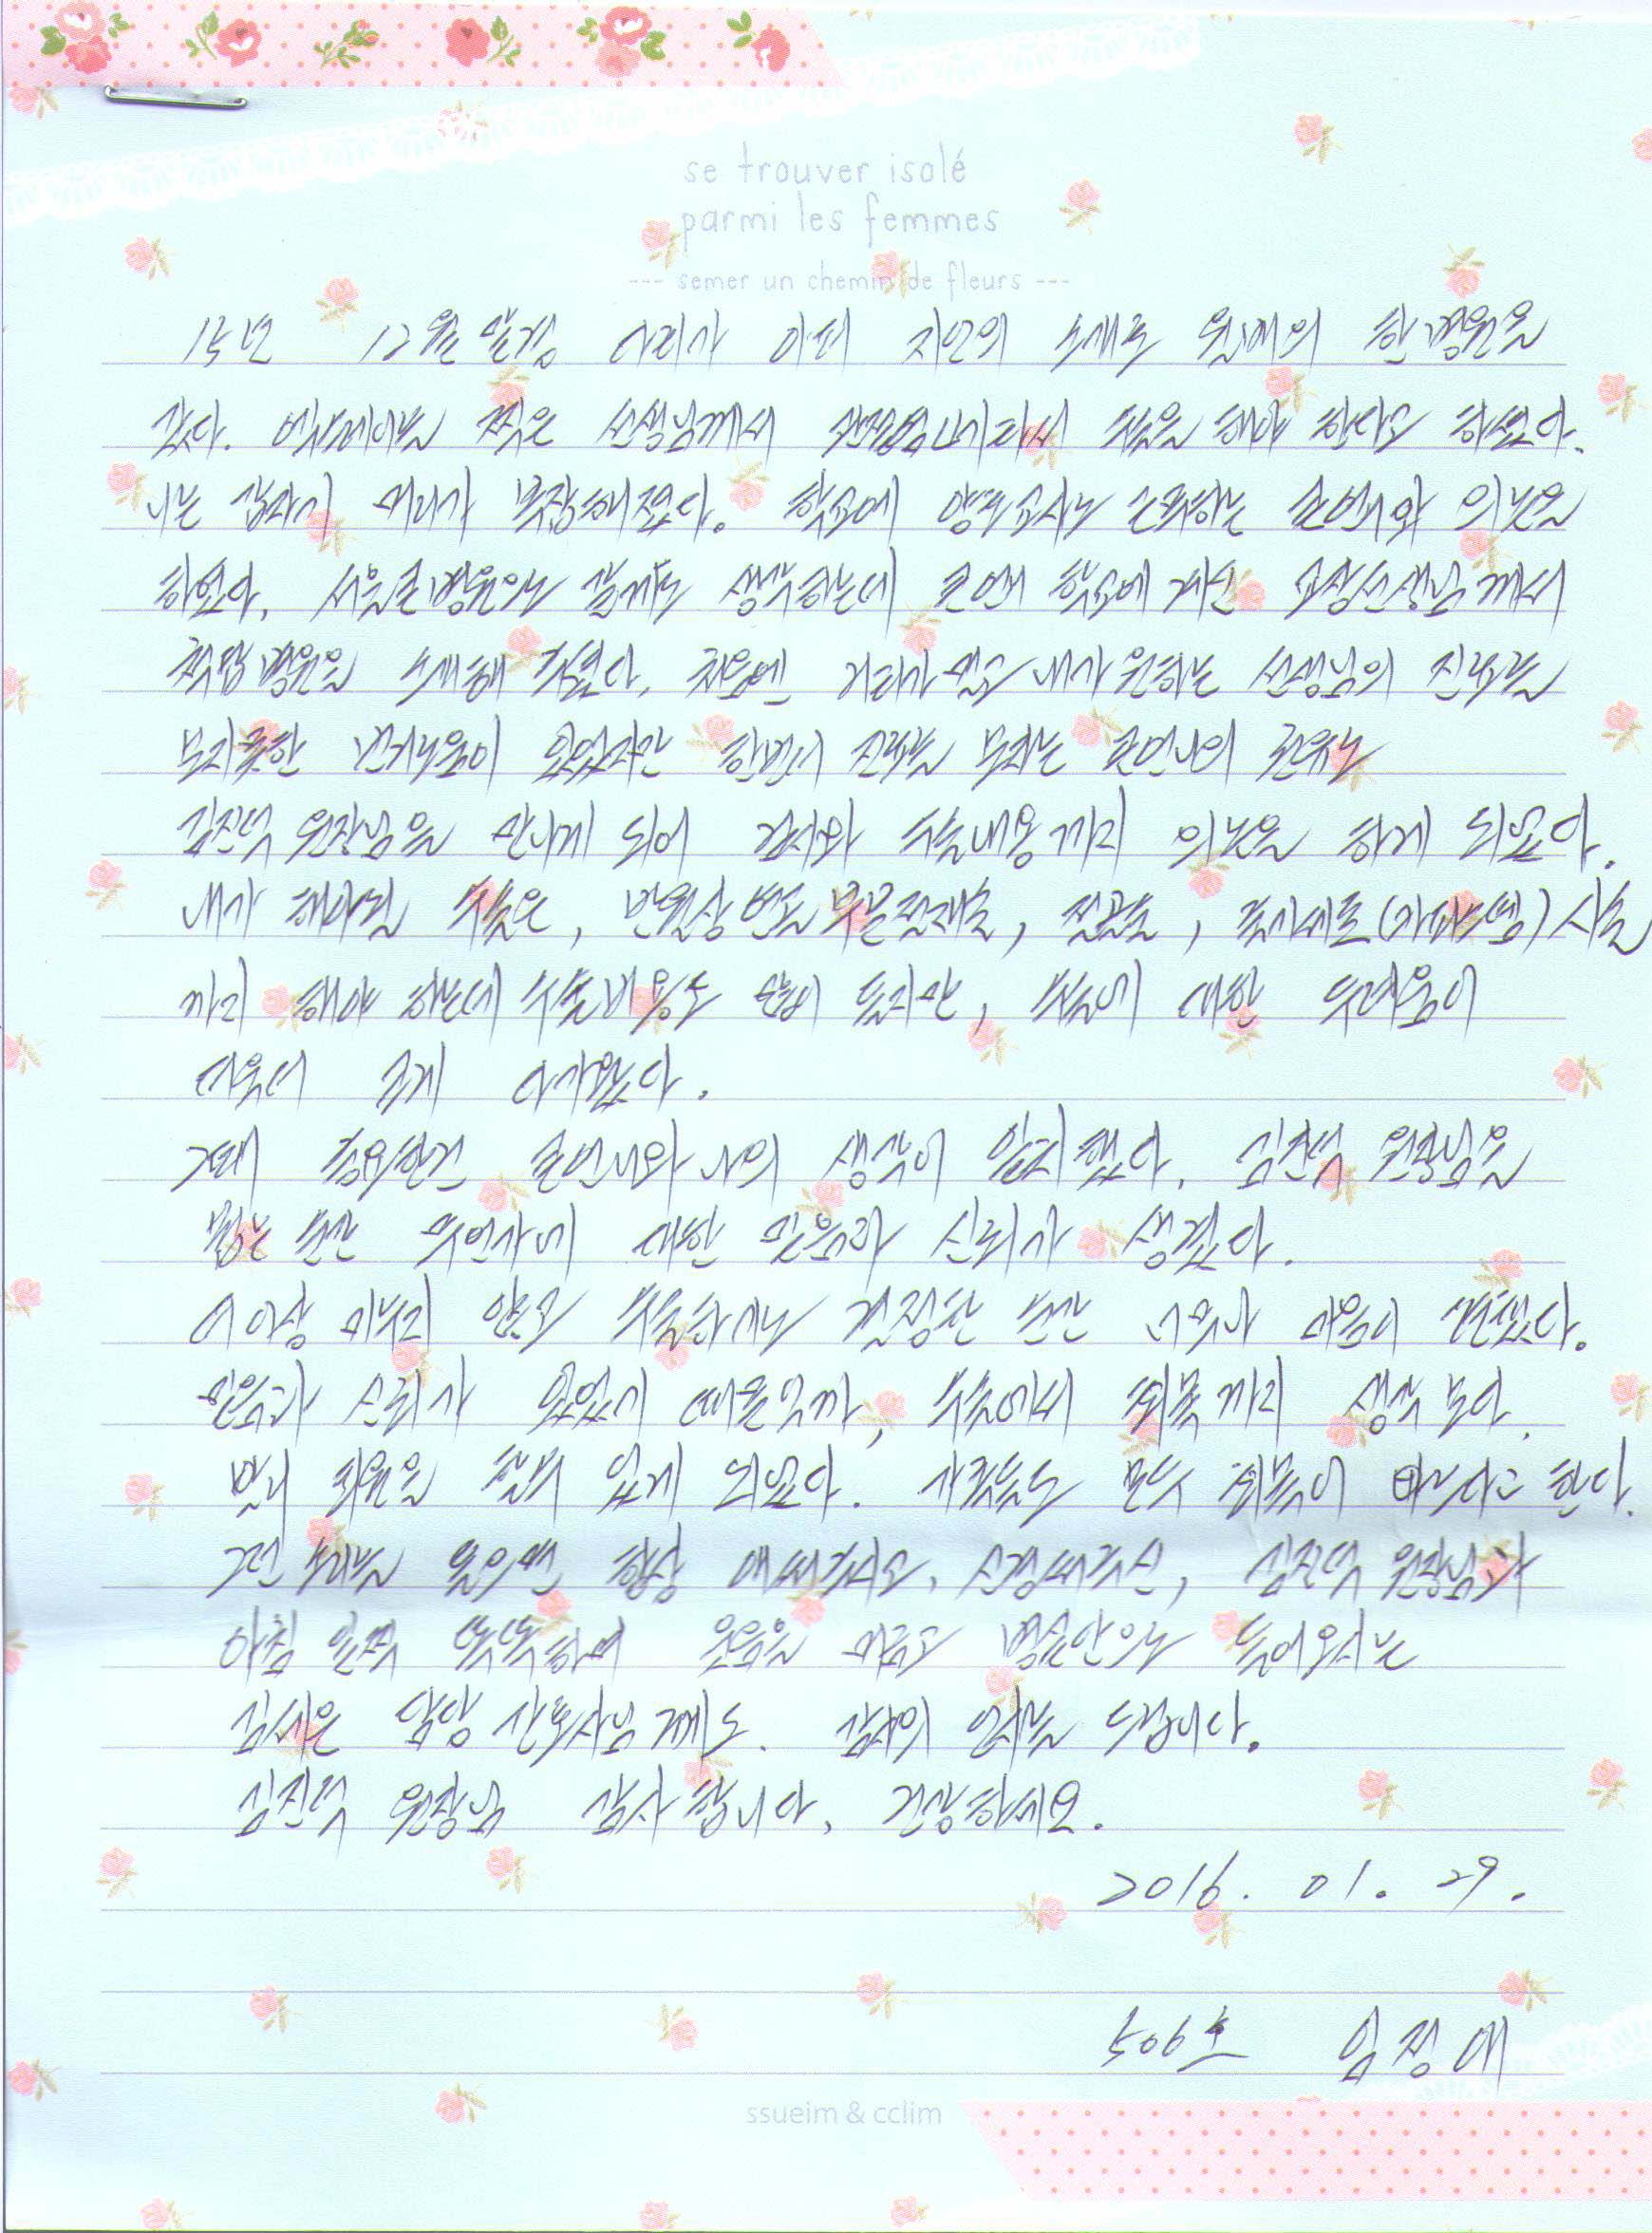 se trouver isolé
parmi les femmes
--- semer un chemin de fleurs ---
15년 12월 말경 다리가 아파 지인의 소개로 원에의 한 병원을
갔다. 사진을 찍은 선생님께서 수술을 해야 한다고 하셨다.
나는 갑자기 머리가 복잡해졌다. 학교에 양호교사로 근무하는 큰언니와 의논을
하였다. 서울큰병원으로 갈까도 생각하는데 큰언니 학교에 계신 교장선생님께서
척병원을 소개해 주셨다. 처음엔 거리가 멀고 내가 원하는 선생님의 진료를
보지못한 번거로움이 있었지만 한번더 진료를 보자는 큰언니의 권유로
김진덕 원장님을 만나게 되어 검사와 수술내용까지 의논을 하게 되었다.
내가 해야될 수술은, 반월상 연골 부분절제술, 절골술, 줄기세포(카티스템) 시술
까지 해야 하는데 수술비용도 많이 들지만, 수술에 대한 두려움이
더욱더 크게 다가왔다.
그때 중요한건 큰언니와 나의 생각이 일치했다. 김진덕 원장님을
뵙는 순간 무언가에 대한 믿음과 신뢰가 생겼다.
더이상 미루지 않고 수술하기로 결정한 순간 너무나 마음이 편했다.
믿음과 신뢰가 있었기 때문일까, 수술에서 회복까지 생각 보다
빨리 퇴원을 할수 있게 되었다. 가족들도 모두 회복이 빠르다고 한다.
그런 우리를 돌의땐 항상 애써주시고, 신경써주신, 김진덕 원장님과
아침 일찍 똑똑하며 웃음을 머금고 병실안으로 들어오시는
김시은 담당 간호사님께도 감사의 인사를 드립니다.
김진덕 원장님 감사합니다. 건강하세요.
2016. 01. 29.
506호 임정애
ssueim & cclim